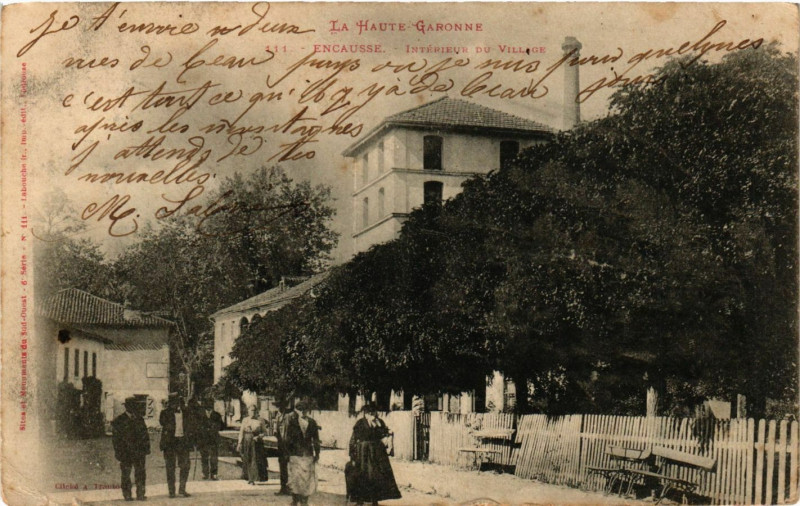 LA HAUTE-GARONNE
111. - ENCAUSSE. - INTÉRIEUR DU VILLAGE
Je t'envie deux
vues de beau pays ou je suis pour quelques
jours
c'est tout ce qu'il y a de beau
après les montagnes
j'attends de tes
nouvelles.
M.
Sites et Monuments du Sud-Ouest - 6e Série - N° 111. - Labouche fr., imp. édit., Toulouse
Cliché A.